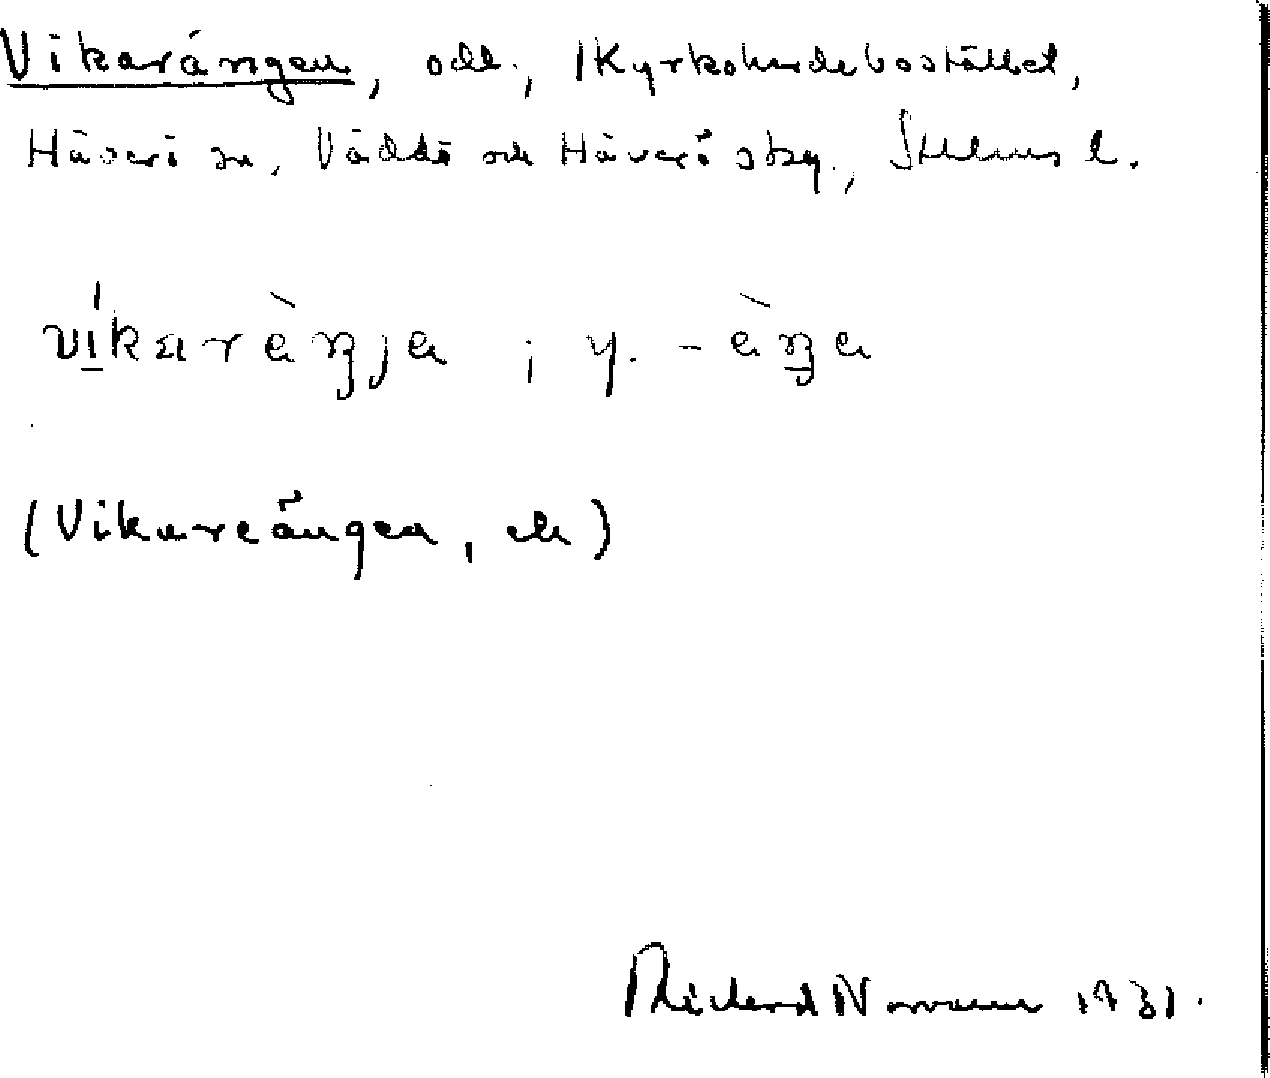 Vikarängen, odl., Kyrkoherdebostället,
Häverö sn, Väddö och Häverö skg., Sthlms l.
víkarèŋja ; y. -èŋa
(Vikareängen, ek)
Richard Norman 1931.